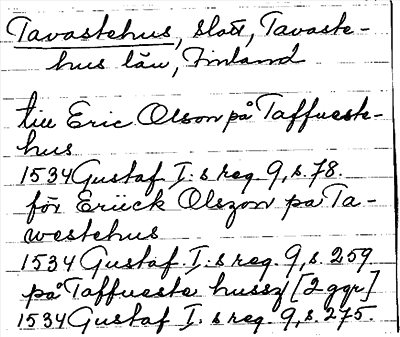 Tavastehus, slott, Tavaste-
hus län, Finland
till Eric Olson på Taffueste-
hus
1534 Gustaf I:s reg. 9, s. 78.
för Erück Olszon pa Ta-
westehus
1534 Gustaf I:s reg. 9, s. 259
på Taffueste hussz [2 ggr]
1534 Gustaf I.s reg. 9, s. 275.